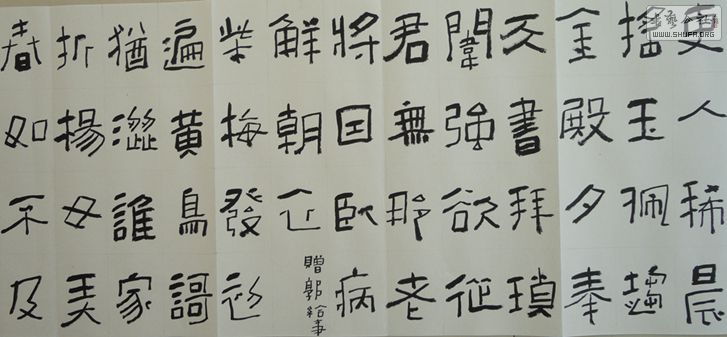 吏人稀晨
搖玉珮趨
金殿夕奉
天書拜瑣
闈強欲從
君無那老
將因臥病
解朝衣
贈郭給事
紫梅發初
遍黃鳥謌
猶澀誰家
折楊女弄
春如不及
書藝公社
WWW.SHUFA.ORG